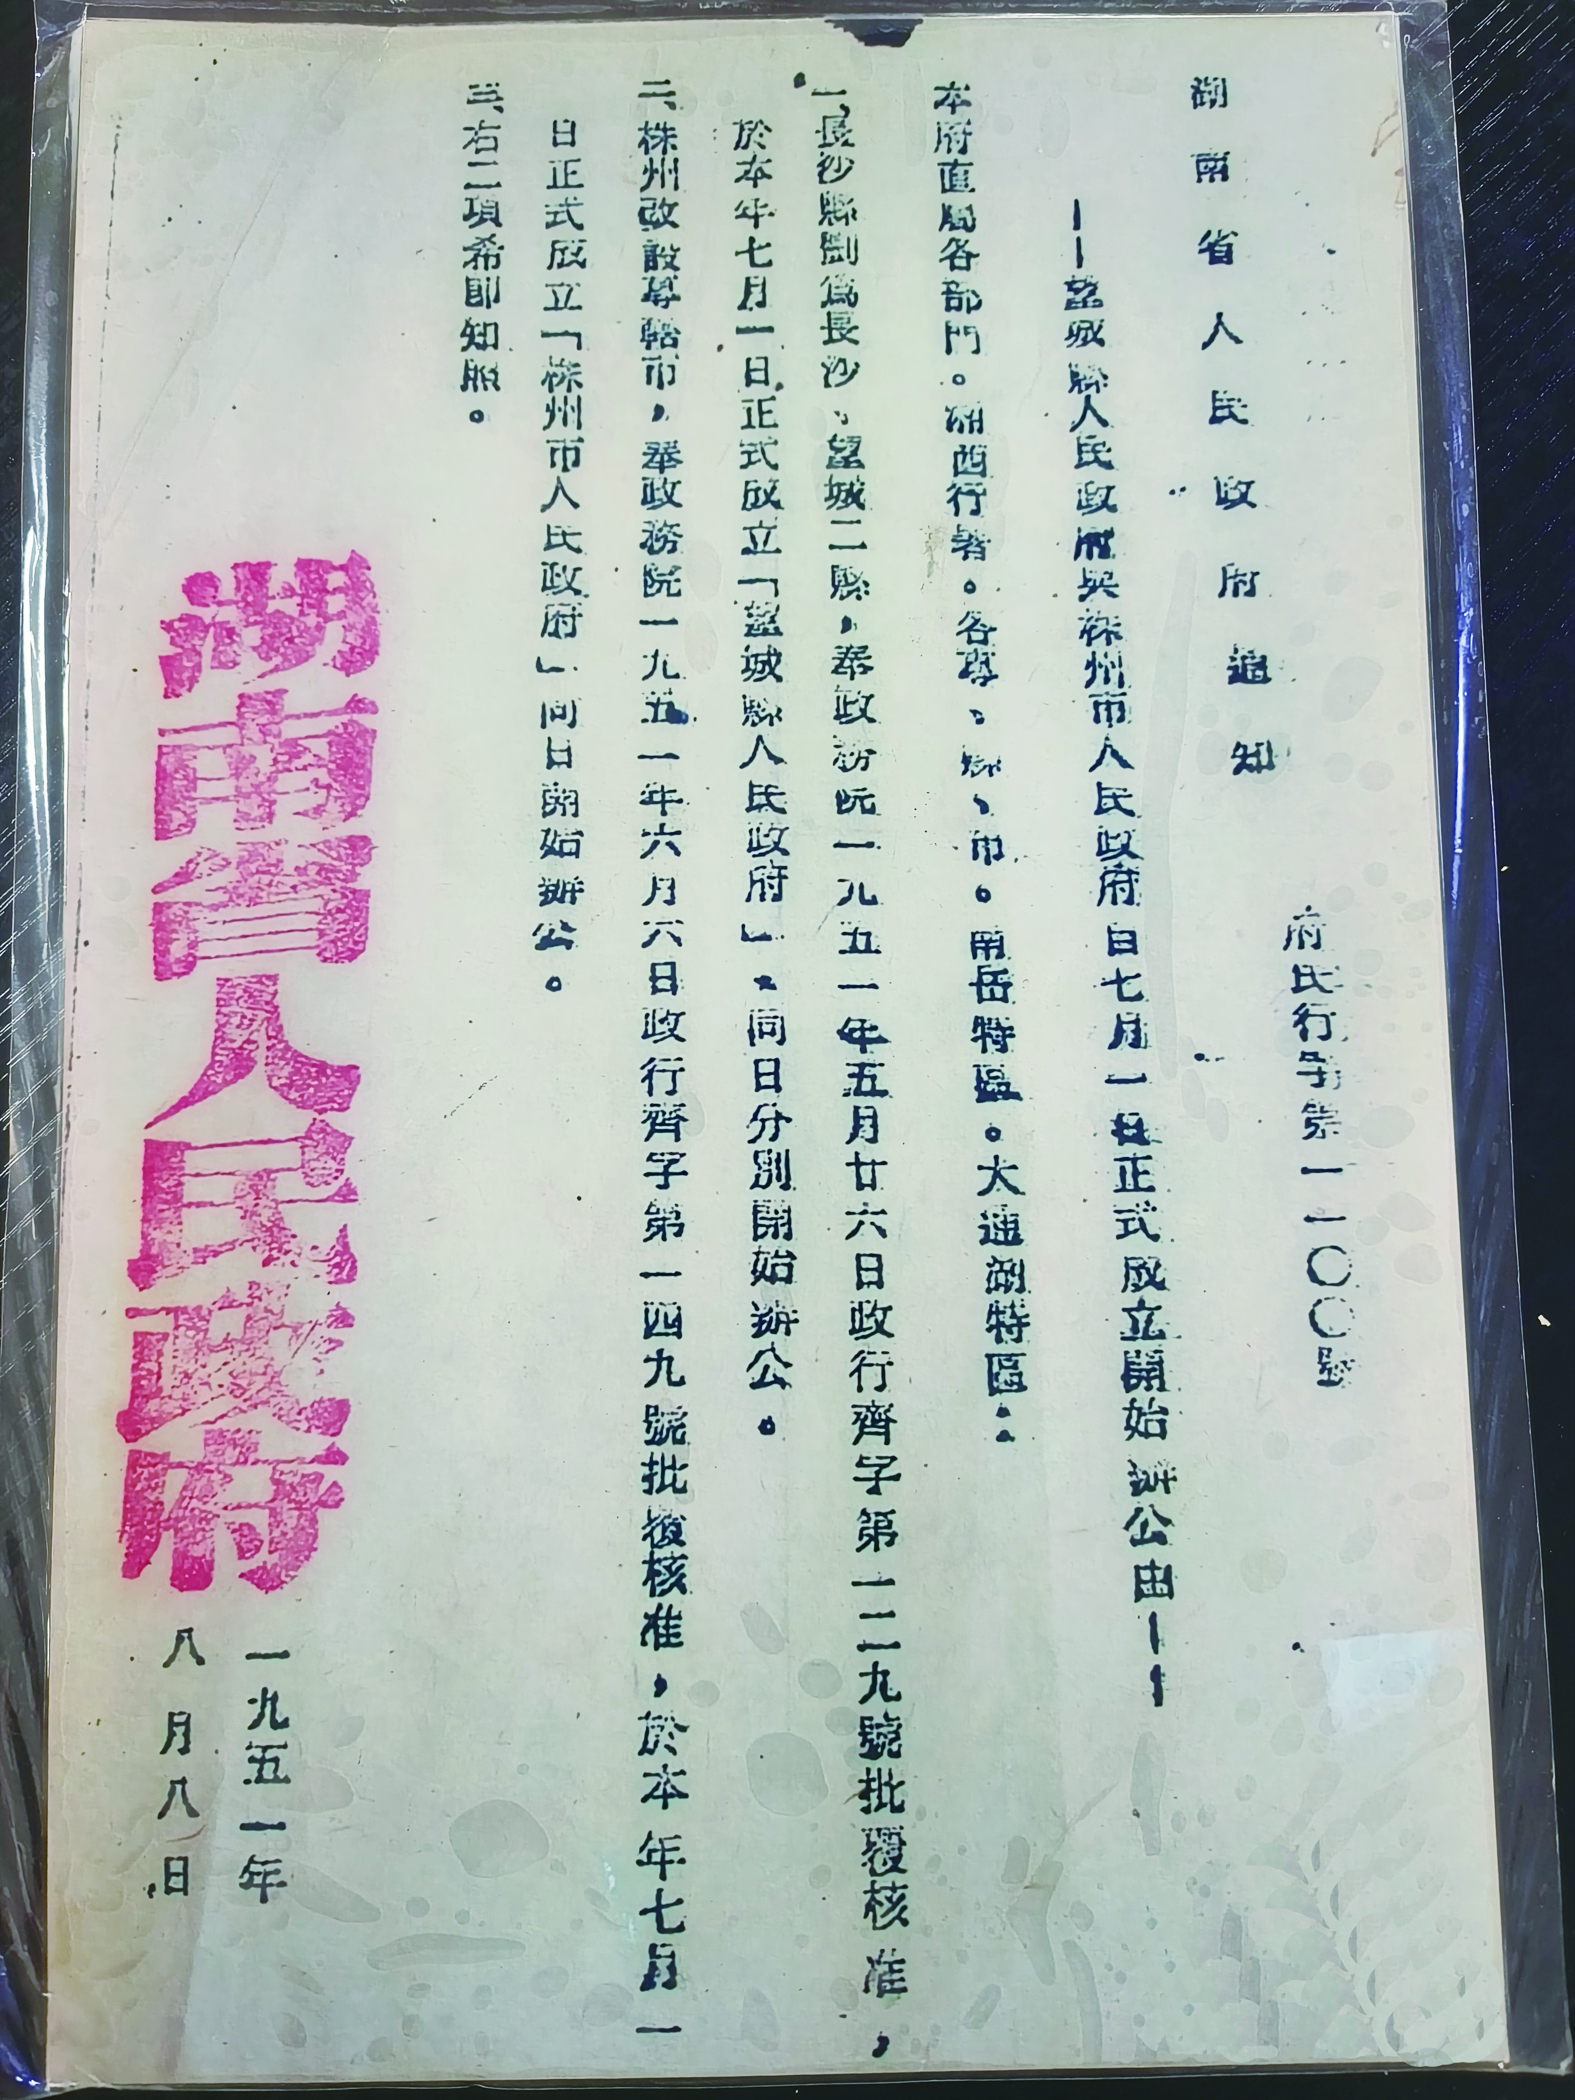 湖南省人民政府通知
府民行字第一一〇〇號
——望城縣人民政府與株州市人民政府自七月一日正式成立開始辦公由——
本府直屬各部門。湘西行署。各專、縣、市。南岳特區。大通湖特區：
一、長沙縣劃爲長沙、望城二縣，奉政務院一九五一年五月廿六日政行齊字第一二九號批覆核准，
於本年七月一日正式成立「望城縣人民政府」。同日分別開始辦公。
二、株州改設專轄市，奉政務院一九五一年六月六日政行齊字第一四九號批複核准，於本年七月一
日正式成立「株州市人民政府」同日開始辦公。
三、右二項希即知照。
湖南省人民政府
一九五一年
八月八日